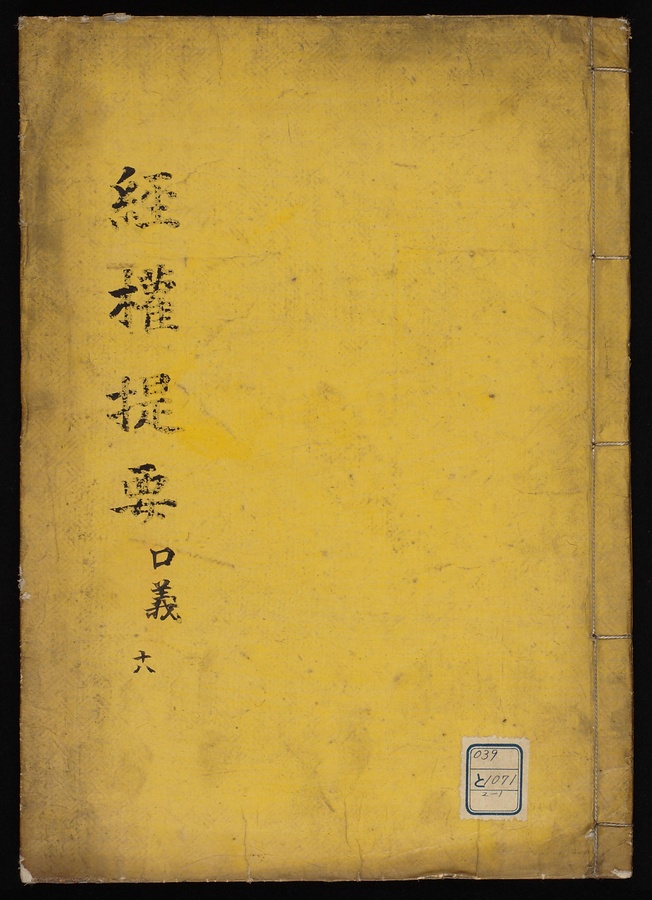 經權提要
口義
十八
039
ㄹ1071
2-1